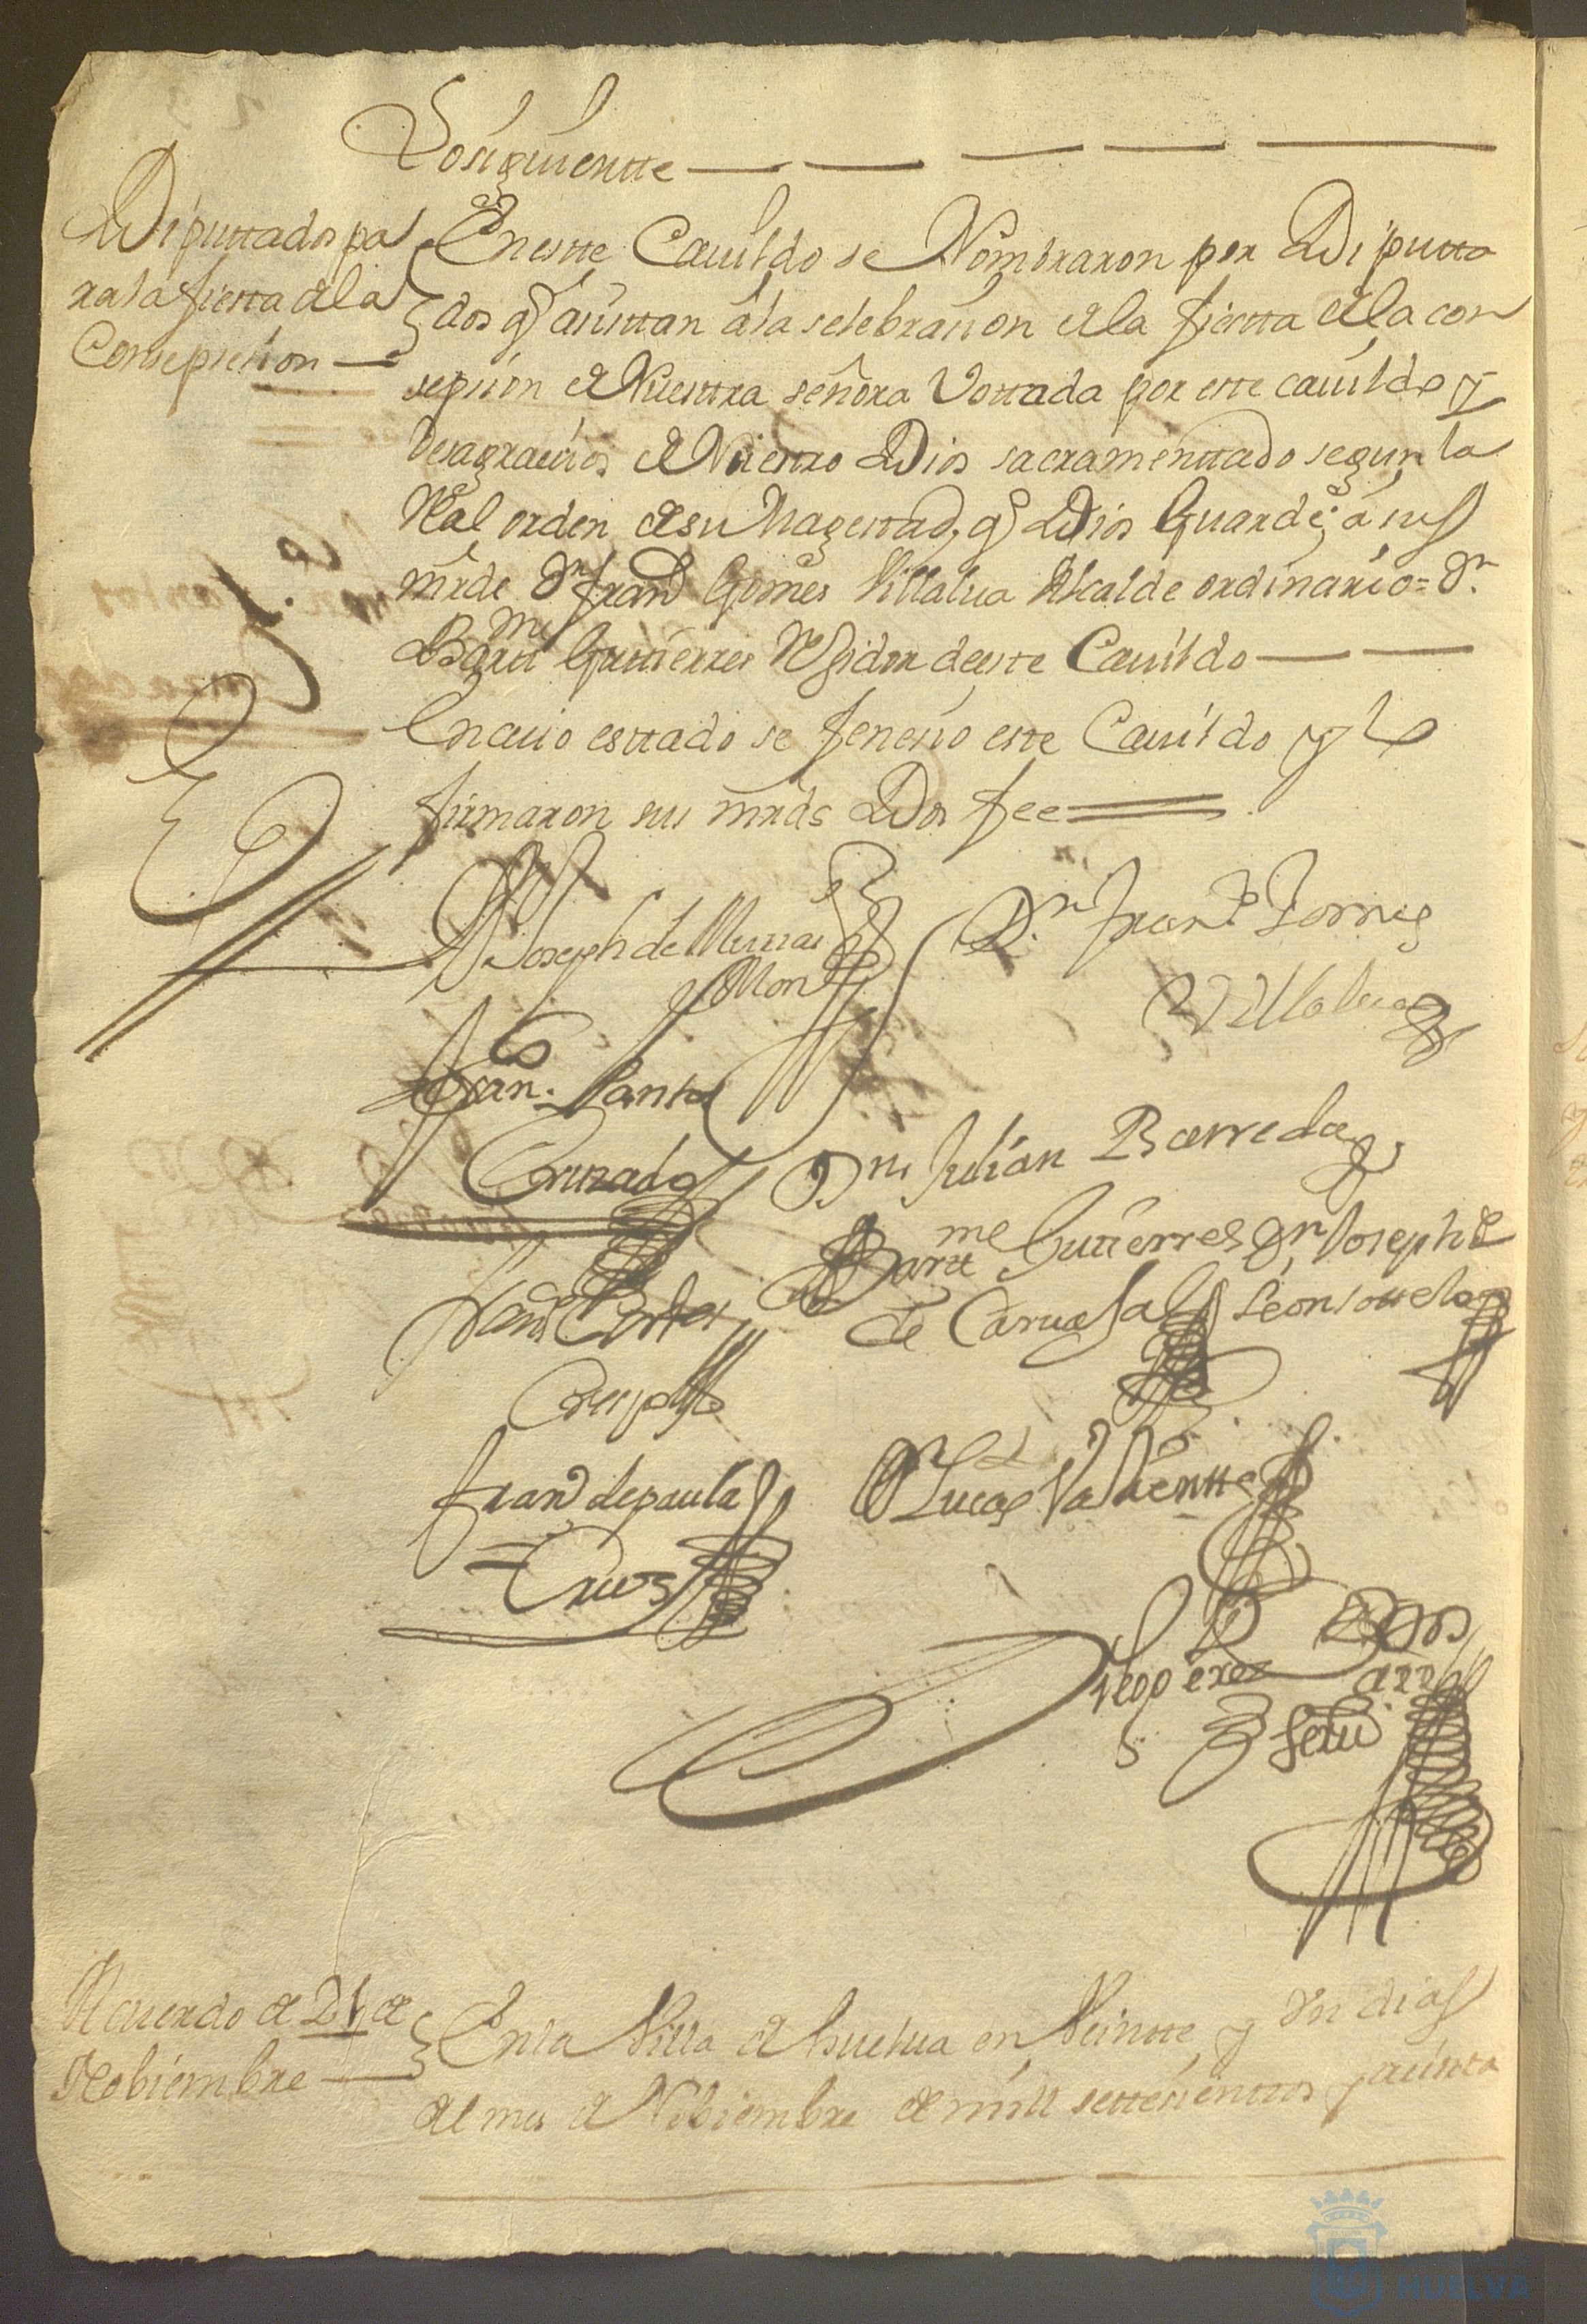 Lo siguientte
Diputtados pa
ra la fiestta de la
Consepcion
En estte Cauildo se Nombraron por Diputta
dos q asisttan a la selebracion de la fiestta de la con
sepsion de Nuesttra señora Vottada por este cauildo y
desagrauios de Nuestro Dios sacramenttado segun la
Rl orden de su Magestad, q Dios Guarde; a sus
mrds Dn Franco Gomes Villalua Alcalde ordinario = Dn
Bartme Gutierres Rexidor de este Cauildo
En cuio esttado se fenesio este Cauildo y lo
firmaron sus mrds Doi fee
Joseph de
Dn Franco Torres
Villalua
Fran. Santos
Cruzado
Dn Julian Barreda
Bartme Gutierres Dn Joseph de
de Caruajal Leon sottelo
Cortes
Crespo
Franco de paula
Cruz
Dn Lucas Valientte
Diego perez
Acuerdo de 21 de
Nobiembre
En la Villa de huelua en Veintte y Un dias
del mes de Nobiembre de mill settesienttos y
HUELVA